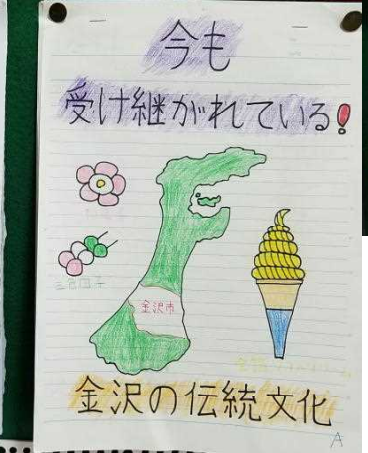 今も
受け継がれている!
三色団子
金沢市
金沢の伝統文化
A